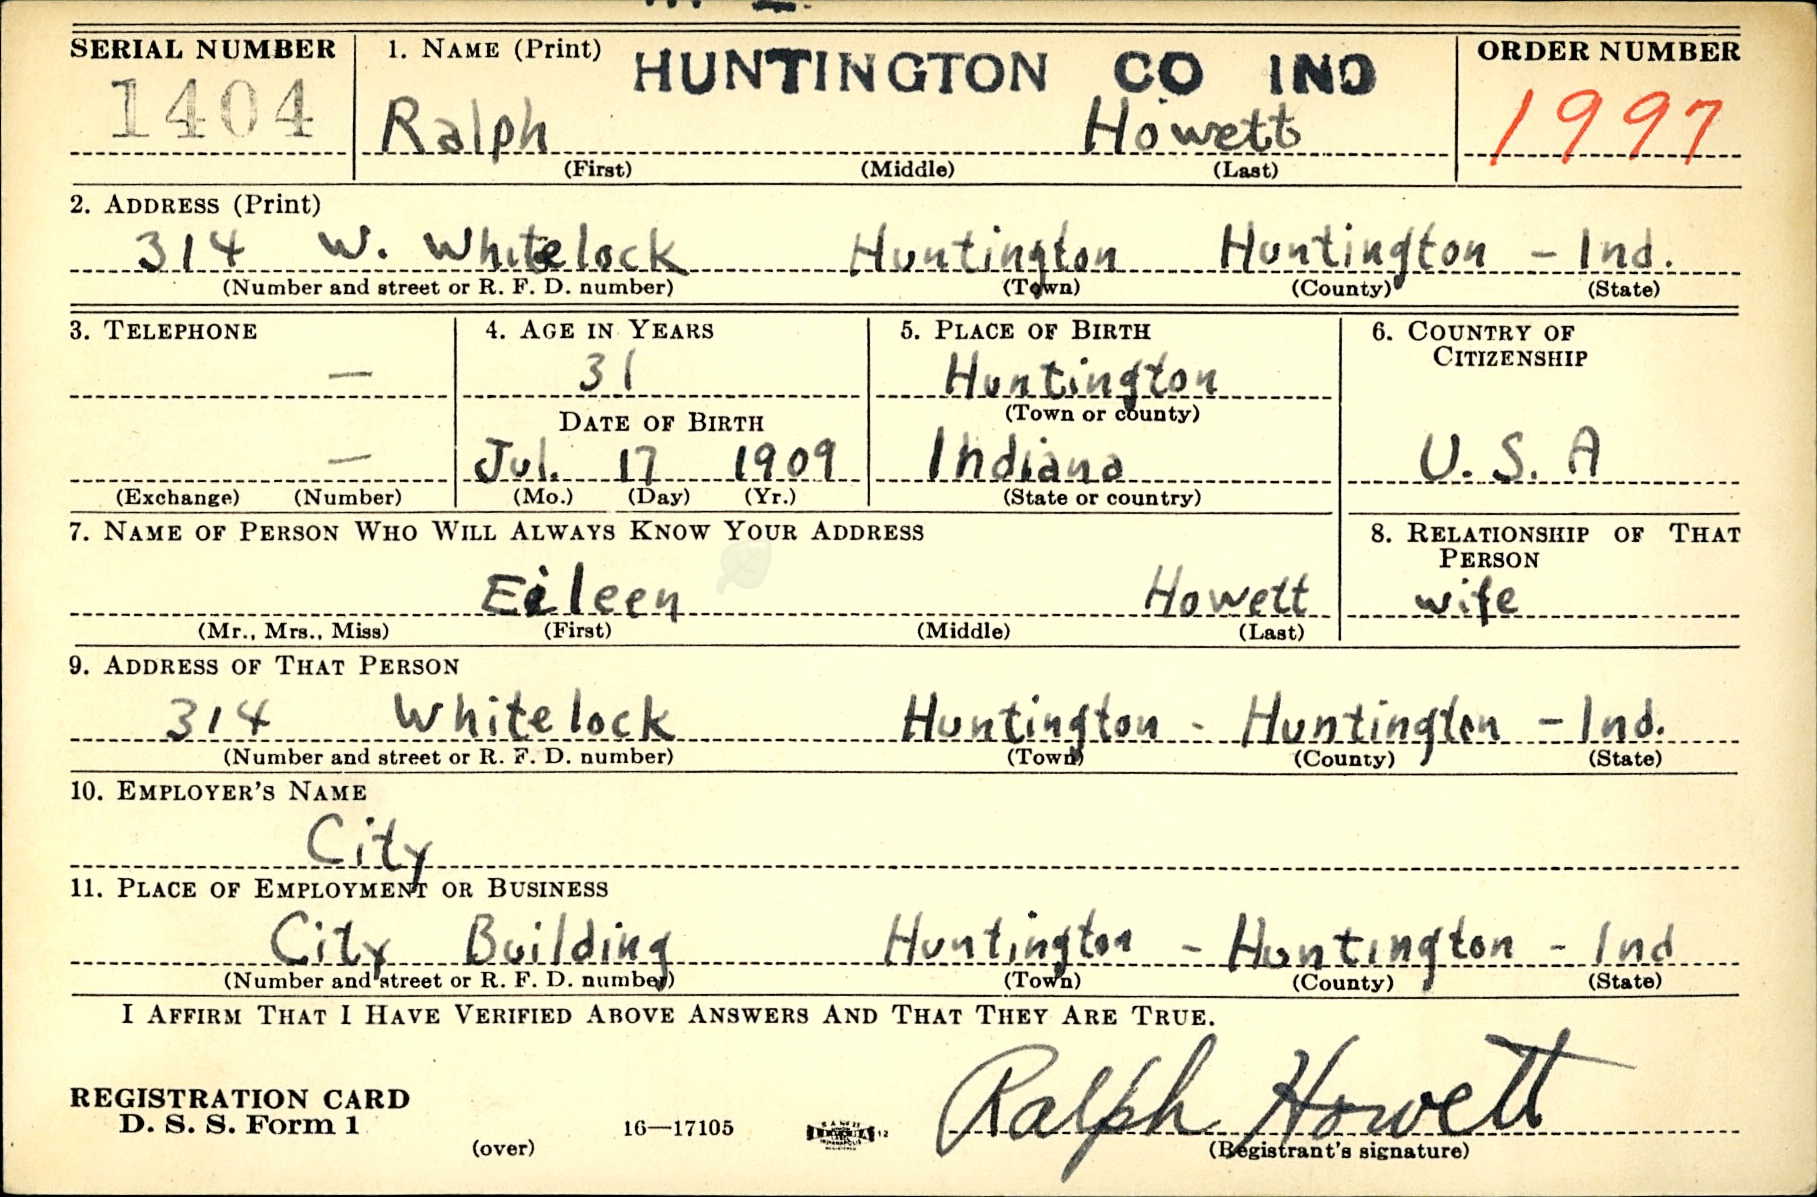 SERIAL NUMBER
1404
1. NAME (Print)
HUNTINGTON CO IND
ORDER NUMBER
1997
Ralph Howett
(First) (Middle) (Last)
2. ADDRESS (Print)
314 W. Whitelock Huntington Huntington - Ind.
(Number and street or R. F. D. number) (Town) (County) (State)
3. TELEPHONE
—
—
(Exchange) (Number)
4. AGE IN YEARS
31
DATE OF BIRTH
Jul. 17 1909
(Mo.) (Day) (Yr.)
5. PLACE OF BIRTH
Huntington
(Town or county)
Indiana
(State or country)
6. COUNTRY OF
CITIZENSHIP
U. S. A
7. NAME OF PERSON WHO WILL ALWAYS KNOW YOUR ADDRESS
Eileen Howett
(Mr., Mrs., Miss) (First) (Middle) (Last)
8. RELATIONSHIP OF THAT
PERSON
wife
9. ADDRESS OF THAT PERSON
314 Whitelock Huntington - Huntington - Ind.
(Number and street or R. F. D. number) (Town) (County) (State)
10. EMPLOYER'S NAME
City
11. PLACE OF EMPLOYMENT OR BUSINESS
City Building Huntington - Huntington - Ind
(Number and street or R. F. D. number) (Town) (County) (State)
I AFFIRM THAT I HAVE VERIFIED ABOVE ANSWERS AND THAT THEY ARE TRUE.
Ralph Howett
(Registrant's signature)
REGISTRATION CARD
D. S. S. Form 1
(over)
16—17105
12